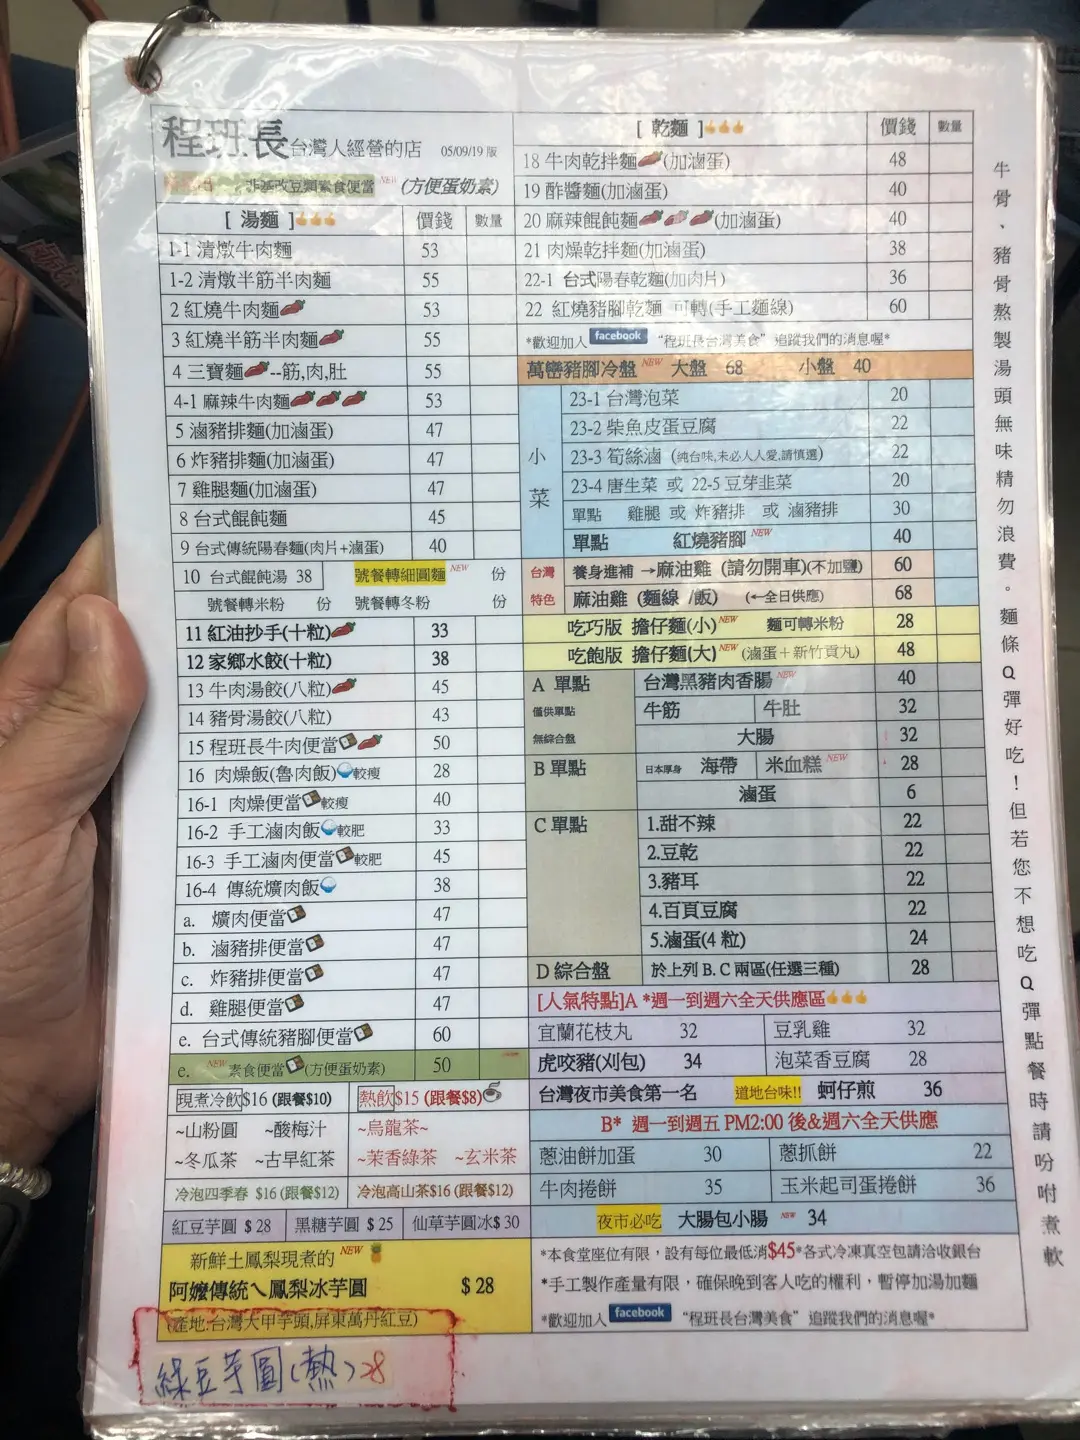 程班長台灣人經營的店 05/09/19 版
非基改豆類素食便當 NEW (方便蛋奶素)
[ 湯麵 ] 價錢 數量
1-1 清燉牛肉麵 53
1-2 清燉半筋半肉麵 55
2 紅燒牛肉麵 53
3 紅燒半筋半肉麵 55
4 三寶麵--筋,肉,肚 55
4-1 麻辣牛肉麵 53
5 滷豬排麵(加滷蛋) 47
6 炸豬排麵(加滷蛋) 47
7 雞腿麵(加滷蛋) 47
8 台式餛飩麵 45
9 台式傳統陽春麵(肉片+滷蛋) 40
10 台式餛飩湯 38 號餐轉細圓麵 NEW 份
號餐轉米粉 份 號餐轉冬粉 份
11 紅油抄手(十粒) 33
12 家鄉水餃(十粒) 38
13 牛肉湯餃(八粒) 45
14 豬骨湯餃(八粒) 43
15 程班長牛肉便當 50
16 肉燥飯(魯肉飯) 較瘦 28
16-1 肉燥便當 較瘦 40
16-2 手工滷肉飯 較肥 33
16-3 手工滷肉便當 較肥 45
16-4 傳統爌肉飯 38
a. 爌肉便當 47
b. 滷豬排便當 47
c. 炸豬排便當 47
d. 雞腿便當 47
e. 台式傳統豬腳便當 60
e. NEW 素食便當 (方便蛋奶素) 50
現煮冷飲$16 (跟餐$10) 熱飲$15 (跟餐$8)
~山粉圓 ~酸梅汁 ~烏龍茶~
~冬瓜茶 ~古早紅茶 ~茉香綠茶 ~玄米茶
冷泡四季春 $16 (跟餐$12) 冷泡高山茶$16 (跟餐$12)
紅豆芋圓 $ 28 黑糖芋圓 $ 25 仙草芋圓冰$ 30
新鮮土鳳梨現煮的 NEW
阿嬤傳統ㄟ鳳梨冰芋圓 $ 28
(產地:台灣大甲芋頭,屏東萬丹紅豆)
綠豆芋圓(熱) 28
[ 乾麵 ] 價錢 數量
18 牛肉乾拌麵 (加滷蛋) 48
19 酢醬麵(加滷蛋) 40
20 麻辣餛飩麵 (加滷蛋) 40
21 肉燥乾拌麵(加滷蛋) 38
22-1 台式陽春乾麵(加肉片) 36
22 紅燒豬腳乾麵 可轉(手工麵線) 60
*歡迎加入 facebook “程班長台灣美食” 追蹤我們的消息喔*
萬巒豬腳冷盤 NEW 大盤 68 小盤 40
小菜
23-1 台灣泡菜 20
23-2 柴魚皮蛋豆腐 22
23-3 筍絲滷 (純台味,未必人人愛,請慎選) 22
23-4 唐生菜 或 22-5 豆芽韭菜 20
單點 雞腿 或 炸豬排 或 滷豬排 30
單點 紅燒豬腳 NEW 40
台灣 養身進補 →麻油雞 (請勿開車)(不加鹽) 60
特色 麻油雞 (麵線 /飯) (←全日供應) 68
吃巧版 擔仔麵(小) NEW 麵可轉米粉 28
吃飽版 擔仔麵(大) NEW (滷蛋+新竹貢丸) 48
A 單點 台灣黑豬肉香腸 NEW 40
僅供單點 牛筋 牛肚 32
無綜合盤 大腸 32
B 單點 日本厚身 海帶 米血糕 NEW 28
滷蛋 6
C 單點 1.甜不辣 22
2.豆乾 22
3.豬耳 22
4.百頁豆腐 22
5.滷蛋(4 粒) 24
D 綜合盤 於上列 B. C 兩區(任選三種) 28
[人氣特點]A *週一到週六全天供應區
宜蘭花枝丸 32 豆乳雞 32
虎咬豬(刈包) 34 泡菜香豆腐 28
台灣夜市美食第一名 道地台味!! 蚵仔煎 36
B* 週一到週五 PM2:00 後&週六全天供應
蔥油餅加蛋 30 蔥抓餅 22
牛肉捲餅 35 玉米起司蛋捲餅 36
夜市必吃 大腸包小腸 NEW 34
*本食堂座位有限，設有每位最低消$45*各式冷凍真空包請洽收銀台
*手工製作產量有限，確保晚到客人吃的權利，暫停加湯加麵
*歡迎加入 facebook “程班長台灣美食” 追蹤我們的消息喔*
牛骨、豬骨熬製湯頭無味精勿浪費。麵條Q彈好吃！但若您不想吃Q彈點餐時請吩咐煮軟